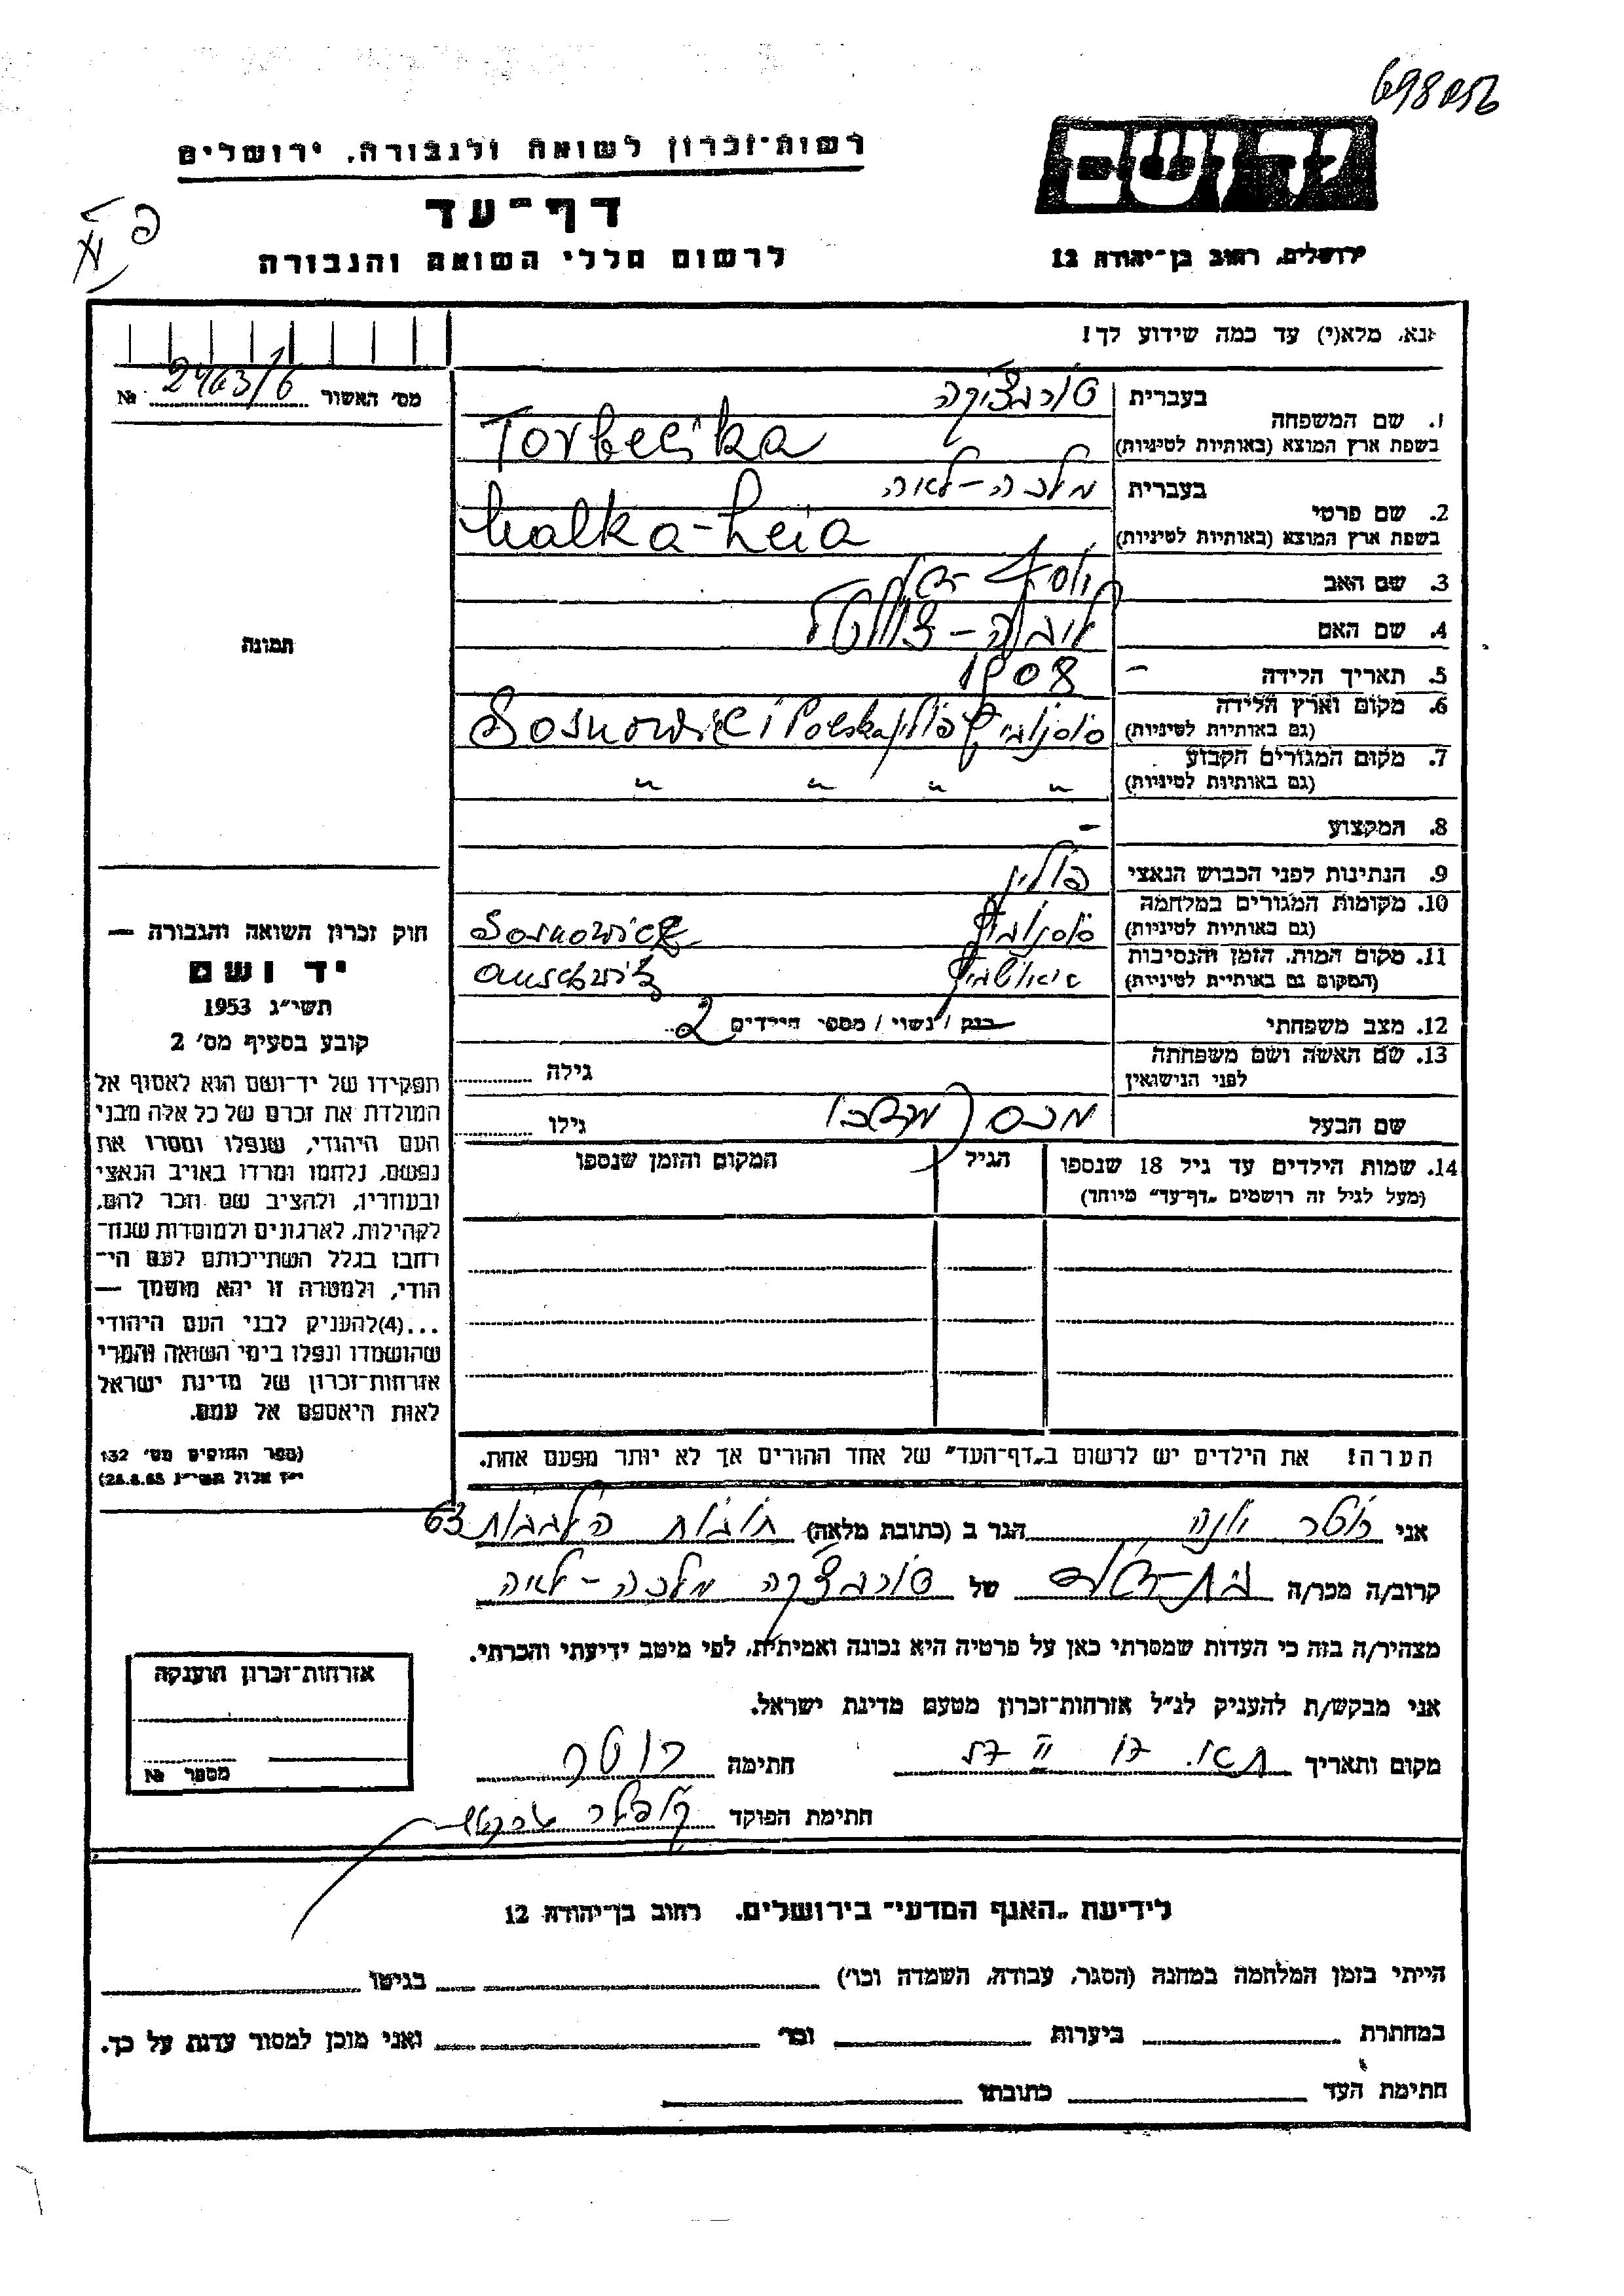 698056
יד ושם
רשות־זכרון לשואה ולגבורה, ירושלים
דף־עד
לרשום חללי השואה והגבורה
ירושלים, רחוב בן־יהודה 12
אנא, מלא(י) עד כמה שידוע לך!
מס' האשור № 2463/6
1. שם המשפחה
בעברית טורבצ'קה
בשפת ארץ המוצא (באותיות לטיניות) Torbecika
2. שם פרטי
בעברית מלכה-לאה
בשפת ארץ המוצא (באותיות לטיניות) Malka-Leia
3. שם האב
4. שם האם
5. תאריך הלידה 1908
6. מקום וארץ הלידה
(גם באותיות לטיניות) סוסנוביץ פולין Polska Sosnowiec
7. מקום המגורים הקבוע
(גם באותיות לטיניות) " " " "
8. המקצוע -
9. הנתינות לפני הכבוש הנאצי פולין
10. מקומות המגורים במלחמה
(גם באותיות לטיניות) סוסנוביץ Sosnowicz
11. מקום המות, הזמן והנסיבות
(המקום גם באותיות לטיניות) אושויץ
12. מצב משפחתי רווק / נשוי / מספר הילדים 2
13. שם האשה ושם משפחתה
לפני הנישואין גילה
שם הבעל גילו
14. שמות הילדים עד גיל 18 שנספו הגיל המקום והזמן שנספו
(מעל לגיל זה רושמים "דף־עד" מיוחד)
הערה! את הילדים יש לרשום ב"דף־העד" של אחד ההורים אך לא יותר מפעם אחת.
תמונה
חוק זכרון השואה והגבורה —
יד ושם
תשי"ג 1953
קובע בסעיף מס' 2
תפקידו של יד־ושם הוא לאסוף אל
המולדת את זכרם של כל אלה מבני
העם היהודי, שנפלו ומסרו את
נפשם, נלחמו ומרדו באויב הנאצי
ובעוזריו, ולהציב שם וזכר להם,
לקהילות, לארגונים ולמוסדות שנח־
רבו בגלל השתייכותם לעם הי־
הודי, ולמטרה זו יהא מוסמך —
...(4)להעניק לבני העם היהודי
שהושמדו ונפלו בימי השואה והמרי
אזרחות־זכרון של מדינת ישראל
לאות היאספם אל עמם.
(ספר החוקים מס' 132
אני רוטר יונה הגר ב (כתובת מלאה) 63
קרוב/ה מכר/ה בת-דודה של טורבצ'קה מלכה-לאה
מצהיר/ה בזה כי העדות שמסרתי כאן על פרטיה היא נכונה ואמיתית, לפי מיטב ידיעתי והכרתי.
אני מבקש/ת להעניק לנ"ל אזרחות־זכרון מטעם מדינת ישראל.
מקום ותאריך חתימה רוטר
חתימת הפוקד
אזרחות־זכרון הוענקה
מספר №
לידיעת "האגף המדעי" בירושלים, רחוב בן־יהודה 12
הייתי בזמן המלחמה במחנה (הסגר, עבודה, השמדה וכו') בגיטו
במחתרת ביערות וכו' ואני מוכן למסור עדות על כך.
חתימת העד כתובתו